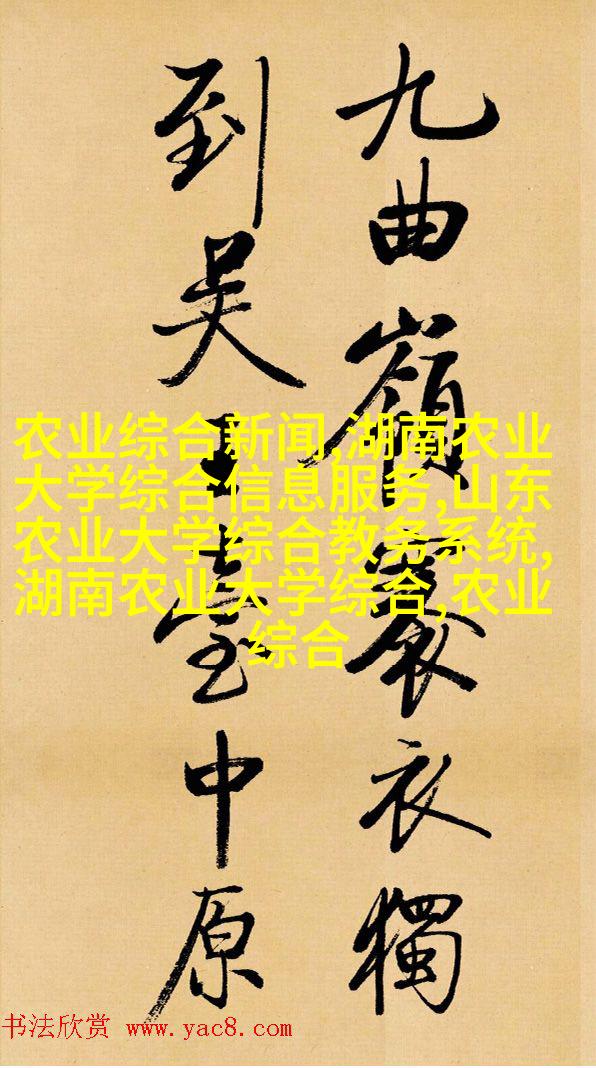 九曲嶺褰衣獨
到吴王臺中原
农业综合新闻,湖南农业
大学综合信息服务,山东
农业大学综合教务系统,
湖南农业大学综合,农业
综合
书法欣赏 www.yac8.com